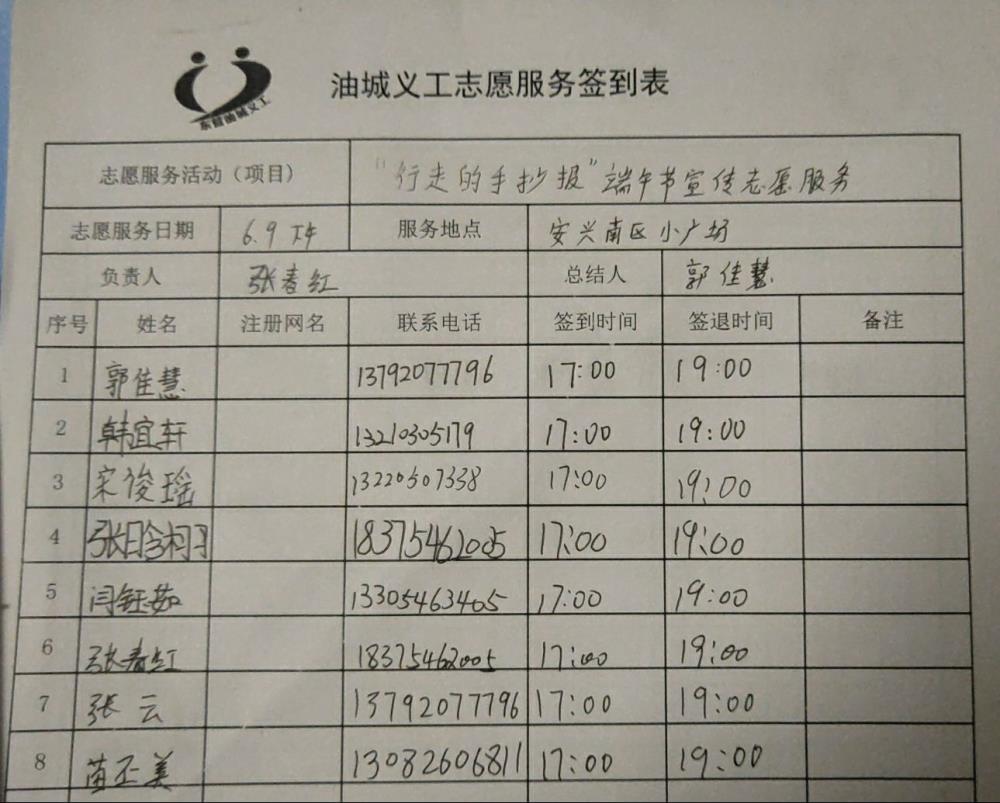 东营油城义工
油城义工志愿服务签到表
志愿服务活动（项目） “行走的手抄报”端午节宣传志愿服务
志愿服务日期 6.9 下午 服务地点 安兴南区小广场
负责人 张春红 总结人 郭佳慧
序号 姓名 注册网名 联系电话 签到时间 签退时间 备注
1 郭佳慧 13792077796 17:00 19:00
2 韩宜轩 13210305179 17:00 19:00
3 宋俊瑶 13220507338 17:00 19:00
4 张日含 18375462005 17:00 19:00
5 闫钰茹 13305463405 17:00 19:00
6 张春红 18375462005 17:00 19:00
7 张云 13792077796 17:00 19:00
8 苗丕美 13082606811 17:00 19:00